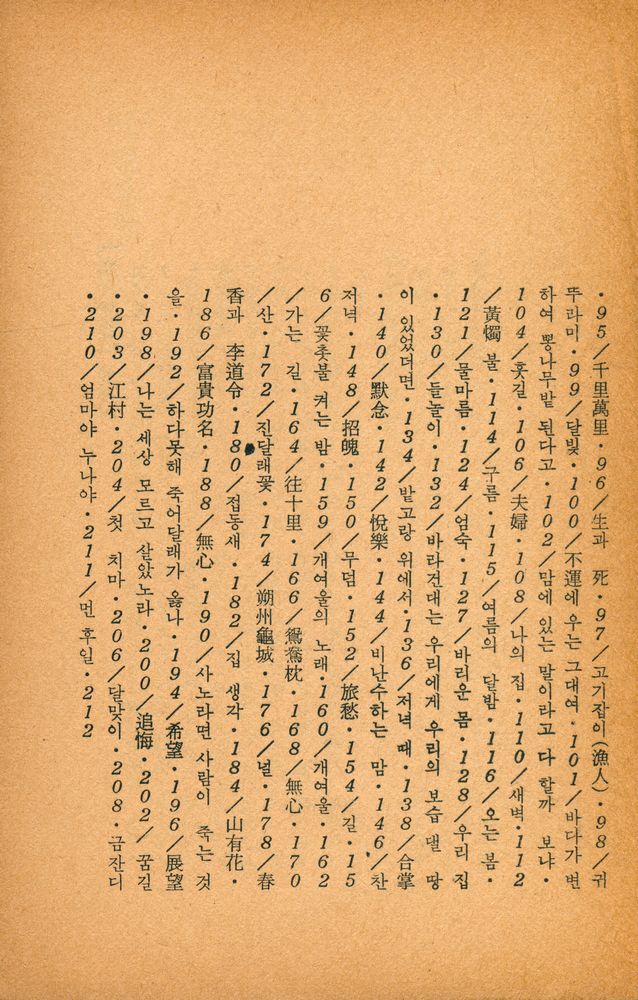 ・95／千里萬里・96／生과 死・97／고기잡이(漁人)・98／귀
뚜라미・99／달빛・100／不運에 우는 그대여・101／바다가 변
하여 뽕나무밭 된다고・102／맘에 있는 말이라고 다 할까 보냐・
104／훗길・106／夫婦・108／나의 집・110／새벽・112
／黃燭 불・114／구름・115／여름의 달밤・116／오는 봄・
121／물마름・124／엄숙・127／바리운 몸・128／우리 집
・130／들놀이・132／바라건대는 우리에게 우리의 보습 댈 땅
이 있었더면・134／밭고랑 위에서・136／저녁 때・138／合掌
・140／默念・142／悅樂・144／비난수하는 맘・146／찬
저녁・148／招魄・150／무덤・152／旅愁・154／길・15
6／꽃촛불 켜는 밤・159／개여울의 노래・160／개여울・162
／가는 길・164／往十里・166／鴛鴦枕・168／無心・170
／산・172／진달래꽃・174／朔州龜城・176／널・178／春
香과 李道令・180／접동새・182／집 생각・184／山有花・
186／富貴功名・188／無心・190／사노라면 사람이 죽는 것
을・192／하다못해 죽어달래가 옳나・194／希望・196／展望
・198／나는 세상 모르고 살았노라・200／追悔・202／꿈길
・203／江村・204／첫 치마・206／달맞이・208・금잔디
・210／엄마야 누나야・211／먼 후일・212